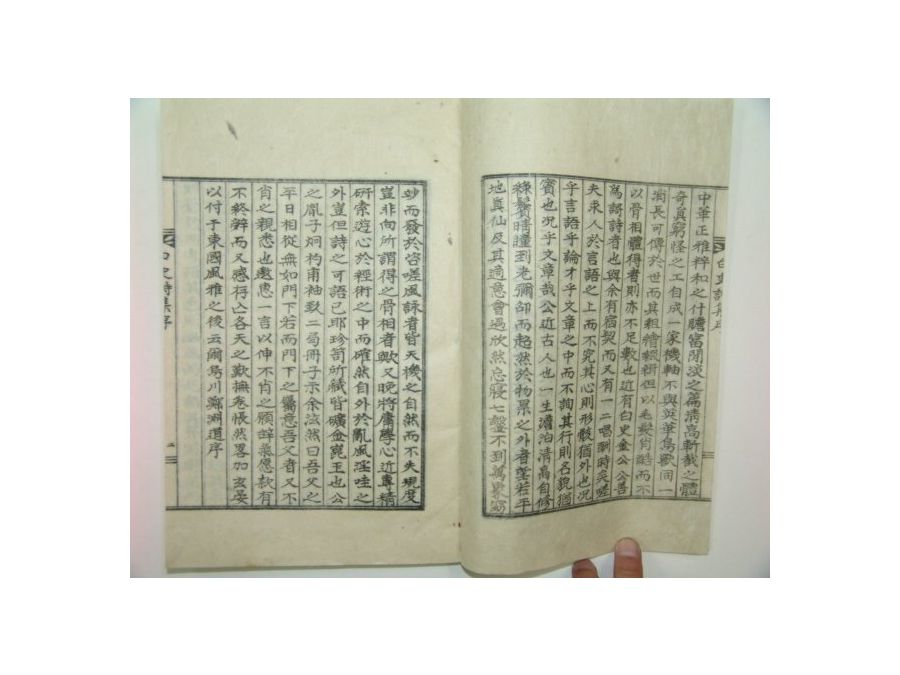 中華正雅粹和之什贍富閒淡之篇淸高斬截之體
奇眞窮怪之工自成一家機軸不與英華鳥獸同一
消長可傳於世而其粗繪綴緝但以毛髮肖酷而不
以骨相體得者則亦不足數也近有白史金公公善
爲詩者也與余有宿契而又有一二唱酬時矣嗟
夫求人於言語之上而不究其心則形骸猶外也况
乎言語乎論才乎文章之中而不詢其行則名貌猶
賓也况乎文章哉公近古人也一生澹泊淸高自修
鬢晴瞳到老彌卲而起然於物累之外者望若平
地眞仙及其適意會遇欣然忘寢七盤不到萬累
白史詩集序
妙而發於咨嗟風詠者皆天機之自然而不失規度
豈非向所謂得之骨相者歟又晩將庸學心近專精
硏索遊心於經術之中而確然自外於亂風淫哇之
外豈但詩之可語已耶珍笥所織皆礦金崑玉也公
之胤子炯杓甫袖致二局冊子示余泫然曰吾父之
平日相從無如門下若而門下之屬意吾父者又不
肖之親悉也邀惠一言以伸不肖之願辭氣應款有
不終辭而又感存亡各天之歎撫卷悵然畧加玄晏
以付于東國風雅之後云爾烏川鄭淵道序
白史詩集序
二